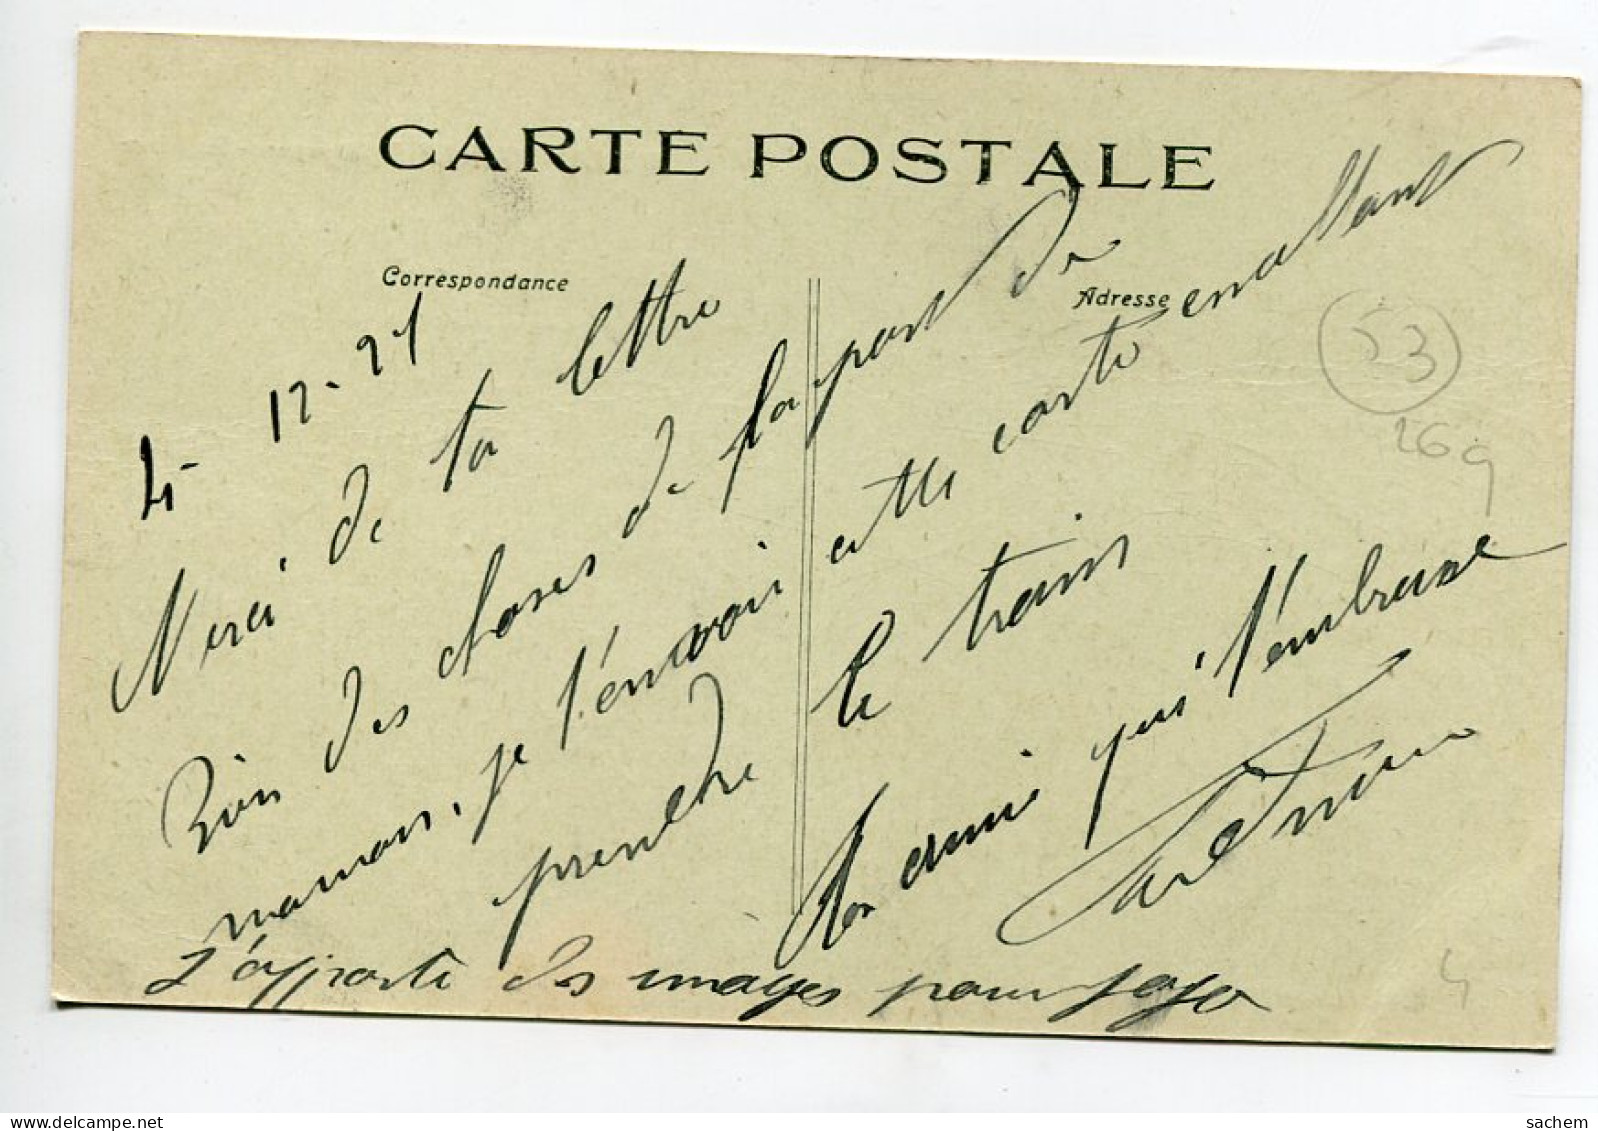 CARTE POSTALE
Correspondance
Adresse
4-12-21
Merci de ta lettre
Bien des choses de la part de
maman, je t'envoie cette carte en allant
prendre le train
Ton ami qui t'embrasse
J'apporte des images pour Jojo
53
269
4
sachem
delcampe.net